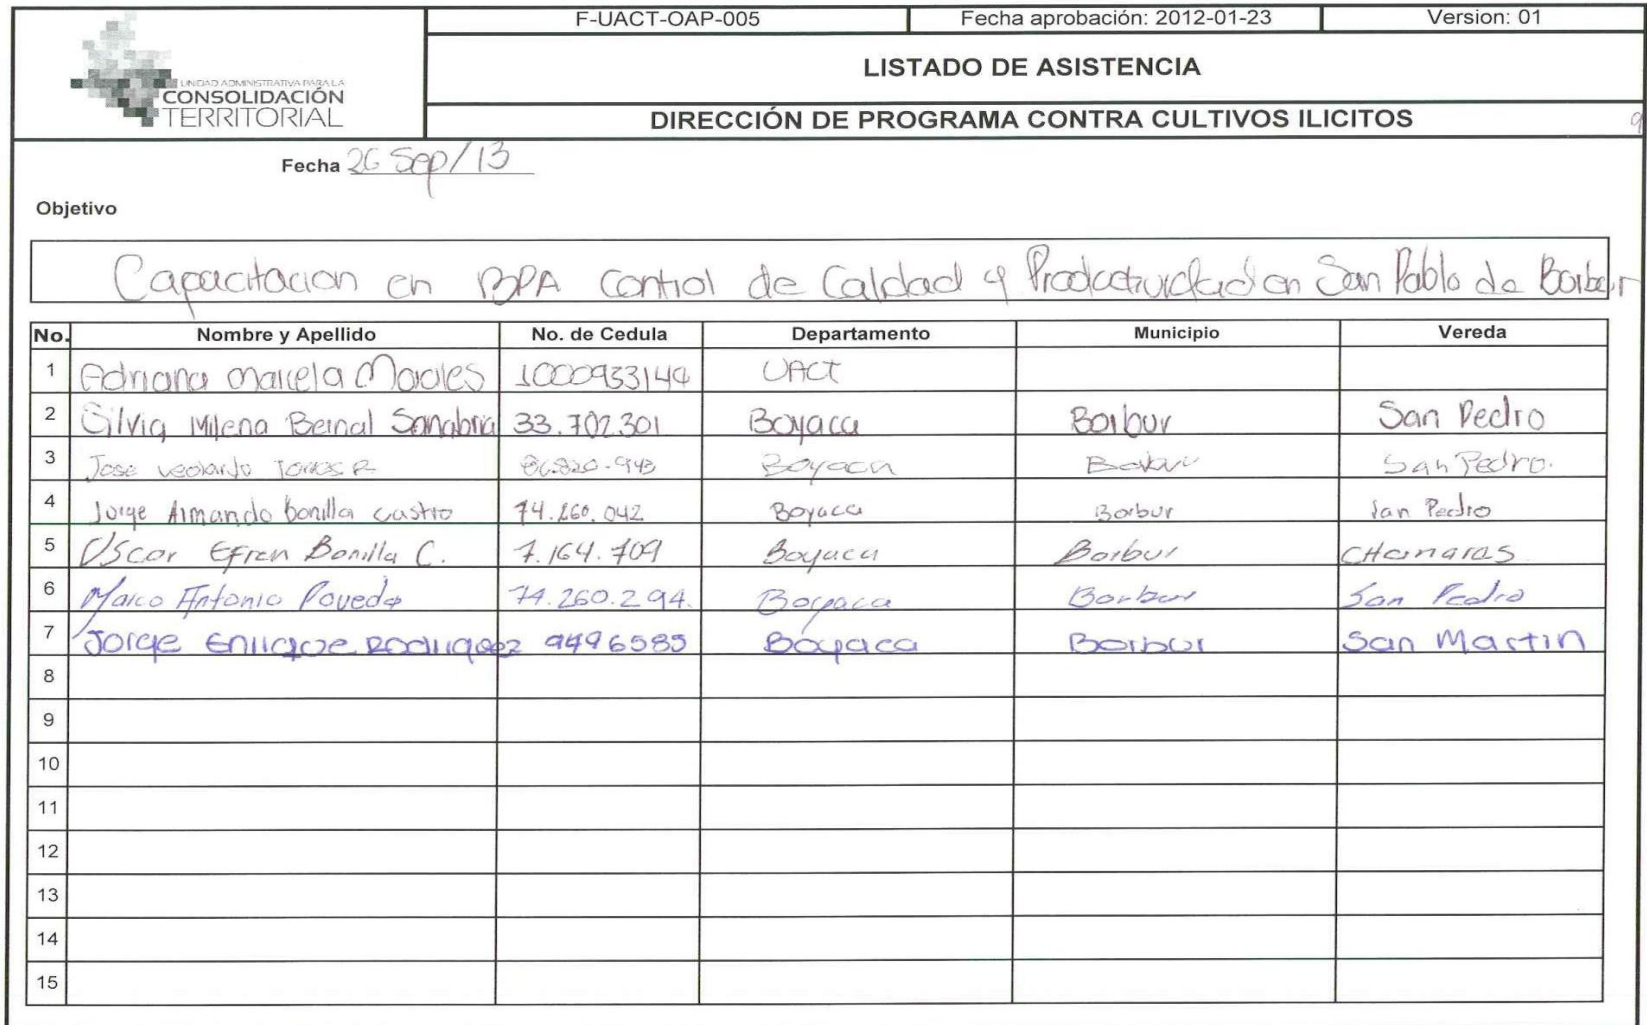 F-UACT-OAP-005 Fecha aprobación: 2012-01-23 Version: 01
UNIDAD ADMINISTRATIVA PARA LA
CONSOLIDACIÓN
TERRITORIAL
LISTADO DE ASISTENCIA
DIRECCIÓN DE PROGRAMA CONTRA CULTIVOS ILICITOS
Fecha 26 Sep/13
Objetivo
Capacitacion en BPA Control de Calidad y Productividad en San Pablo de Borbur
No. Nombre y Apellido No. de Cedula Departamento Municipio Vereda
1 Adriana Marcela Morales 1000933149 UACT
2 Silvia Milena Bernal Sanabria 33.702.301 Boyaca Borbur San Pedro
3 Jose Torres R Boyaca Borbur San Pedro.
4 Jorge Armando Bonilla Castro 74.260.042 Boyaca Borbur San Pedro
5 Oscar Efren Bonilla C. 7.164.709 Boyaca Borbur CHanaras
6 Marco Antonio Poveda 74.260.294. Boyaca Borbur San Pedro
7 Jorge Enrique Rodriguez 9496585 Boyaca Borbur San Martin
8
9
10
11
12
13
14
15